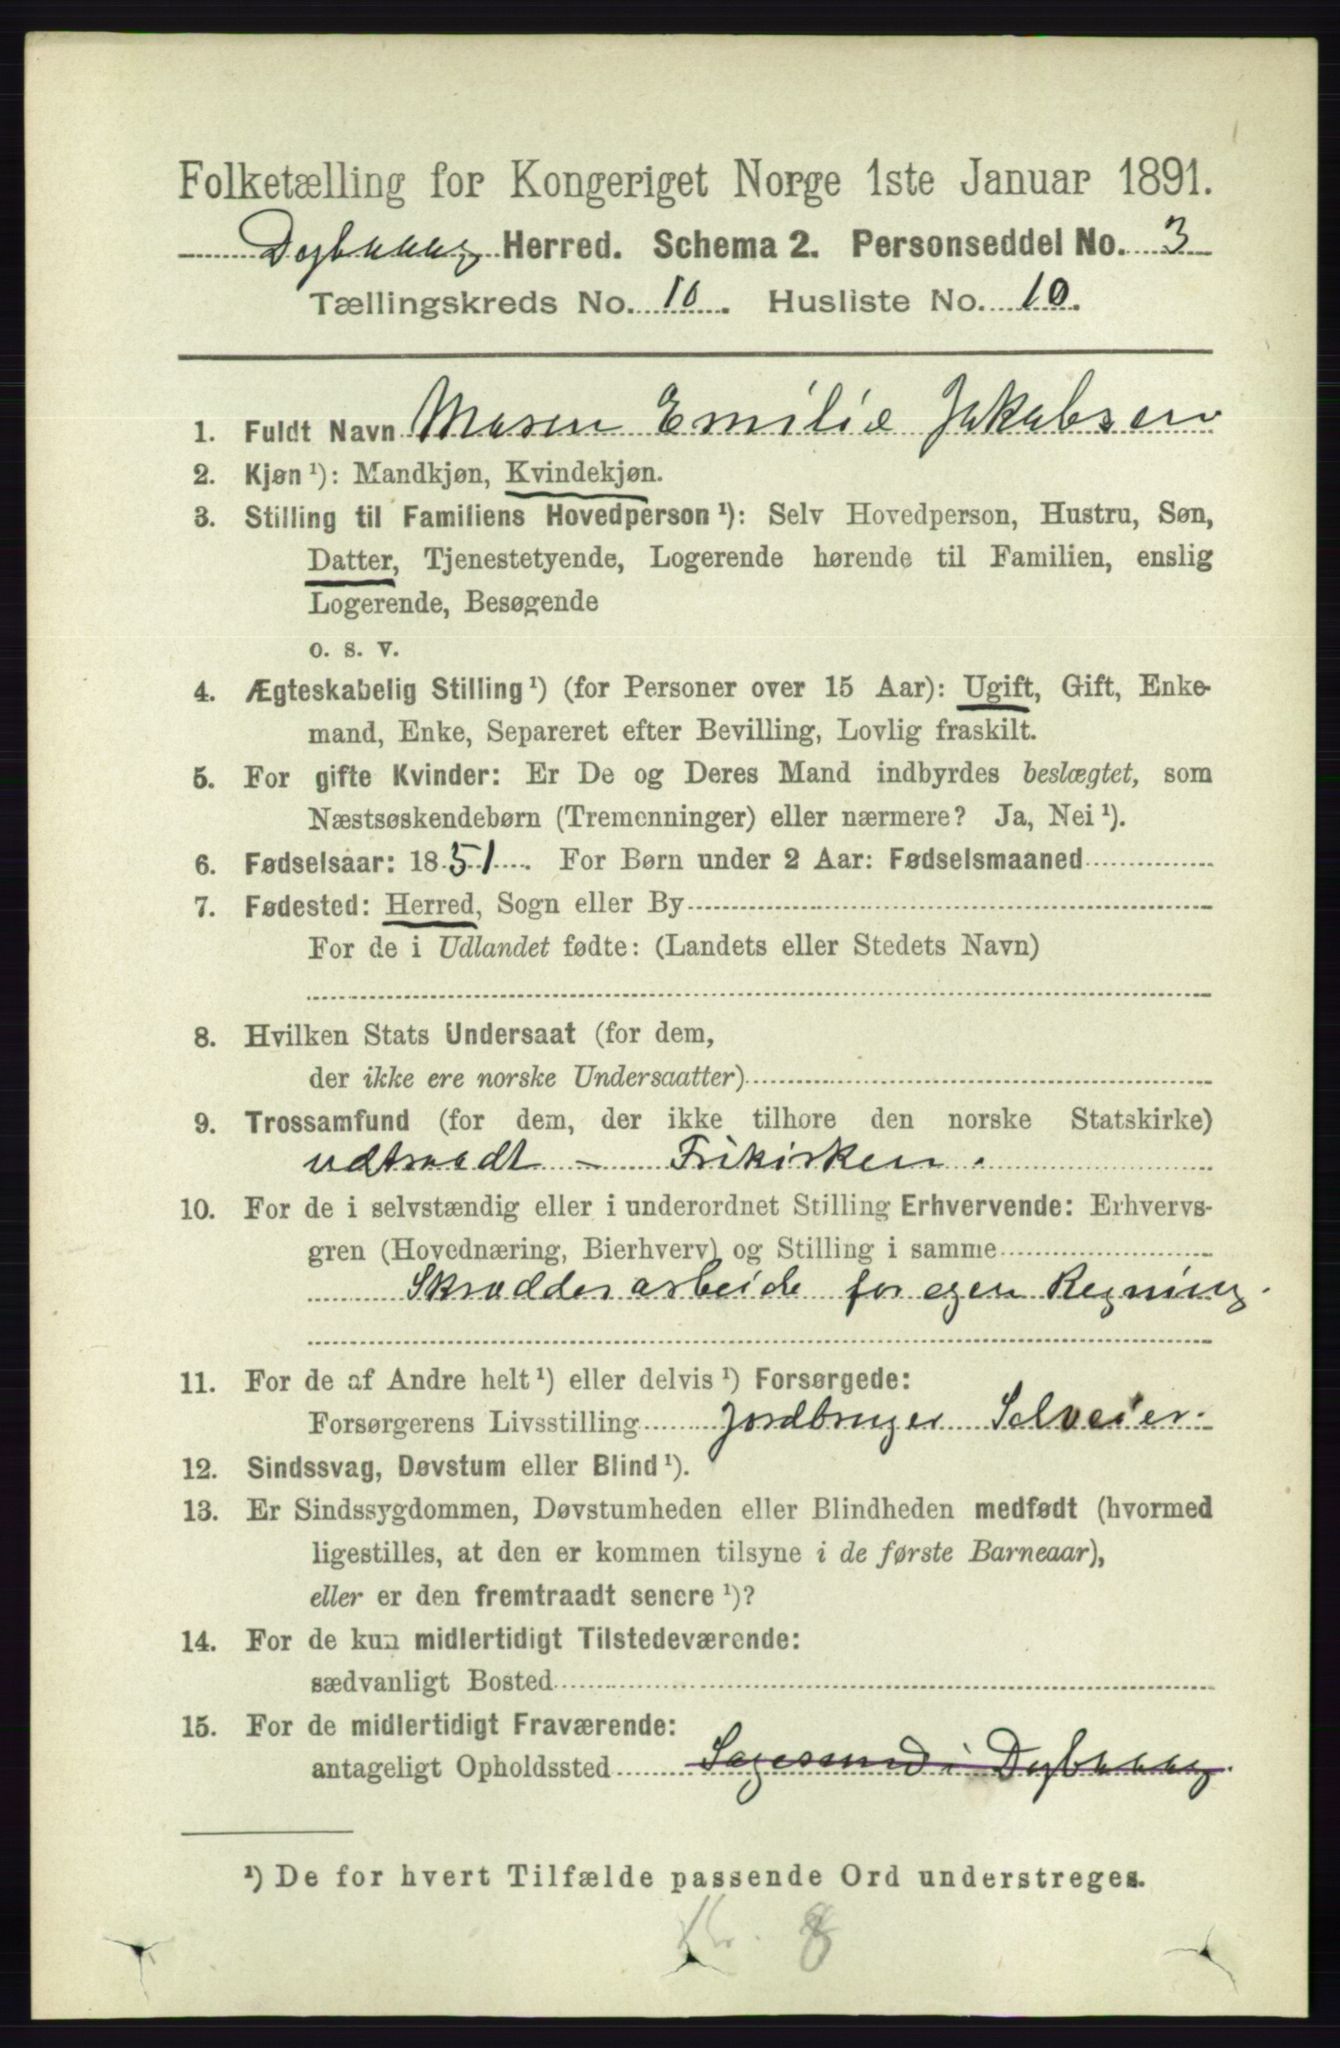 Folketælling for Kongeriget Norge 1ste Januar 1891.
Dybvaag Herred. Schema 2. Personseddel No. 3
Tællingskreds No. 10. Husliste No. 10.
1. Fuldt Navn Maren Emilie Jakobsen
2. Kjøn ¹): Mandkjøn, Kvindekjøn.
3. Stilling til Familiens Hovedperson ¹): Selv Hovedperson, Hustru, Søn,
Datter, Tjenestetyende, Logerende hørende til Familien, enslig
Logerende, Besøgende
o. s. v.
4. Ægteskabelig Stilling ¹) (for Personer over 15 Aar): Ugift, Gift, Enke-
mand, Enke, Separeret efter Bevilling, Lovlig fraskilt.
5. For gifte Kvinder: Er De og Deres Mand indbyrdes beslægtet, som
Næstsøskendebørn (Tremenninger) eller nærmere? Ja, Nei ¹).
6. Fødselsaar: 1851. For Børn under 2 Aar: Fødselsmaaned
7. Fødested: Herred, Sogn eller By
For de i Udlandet fødte: (Landets eller Stedets Navn)
8. Hvilken Stats Undersaat (for dem,
der ikke ere norske Undersaatter)
9. Trossamfund (for dem, der ikke tilhøre den norske Statskirke)
udtraadt - Frikirken.
10. For de i selvstændig eller i underordnet Stilling Erhvervende: Erhvervs-
gren (Hovednæring, Bierhverv) og Stilling i samme
Skrædderarbeide for egen Regning.
11. For de af Andre helt ¹) eller delvis ¹) Forsørgede:
Forsørgerens Livsstilling Jordbruger Selveier.
12. Sindssvag, Døvstum eller Blind ¹).
13. Er Sindssygdommen, Døvstumheden eller Blindheden medfødt (hvormed
ligestilles, at den er kommen tilsyne i de første Barneaar),
eller er den fremtraadt senere ¹)?
14. For de kun midlertidigt Tilstedeværende:
sædvanligt Bosted
15. For de midlertidigt Fraværende:
antageligt Opholdssted Sagesund i Dybvaag.
¹) De for hvert Tilfælde passende Ord understreges.
8